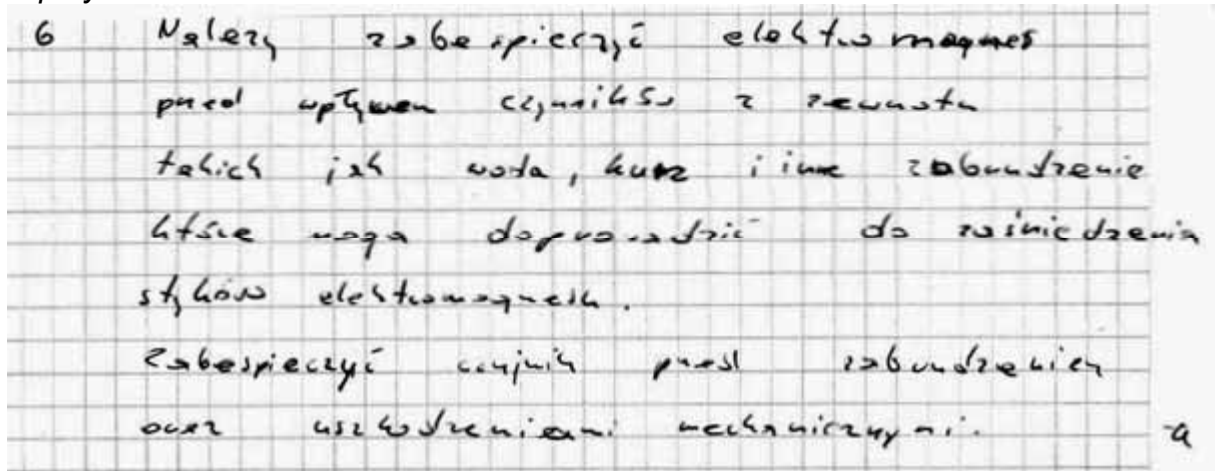 6 Należy zabezpieczyć elektromagnes
przed wpływem czynników z zewnątrz
takich jak woda, kurz i inne zabrudzenie
które mogą doprowadzić do zaśniedzenia
styków elektromagnesu.
Zabezpieczyć czujnik przed zabrudzeniem
oraz uszkodzeniami mechanicznymi.